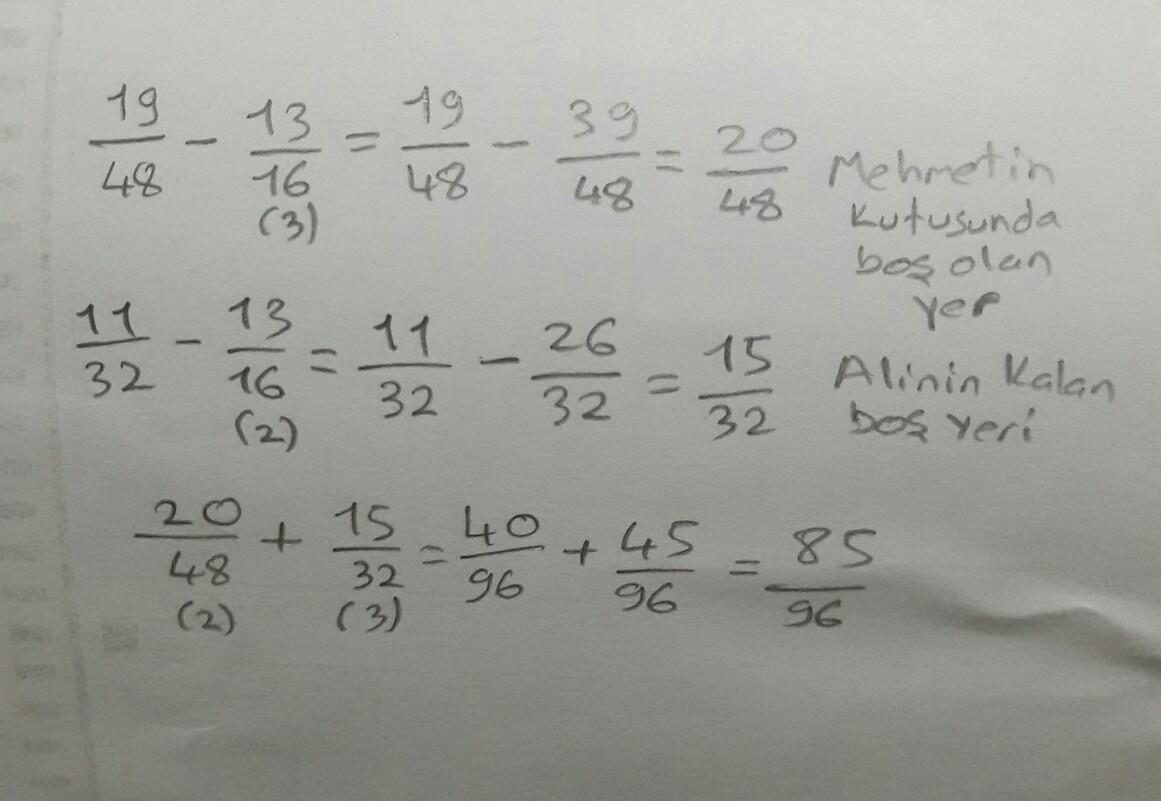 19/48 - 13/16 = 19/48 - 39/48 = 20/48 Mehmetin
(3) kutusunda
boş olan
yer
11/32 - 13/16 = 11/32 - 26/32 = 15/32 Alinin kalan
(2) boş yeri
20/48 + 15/32 = 40/96 + 45/96 = 85/96
(2) (3)